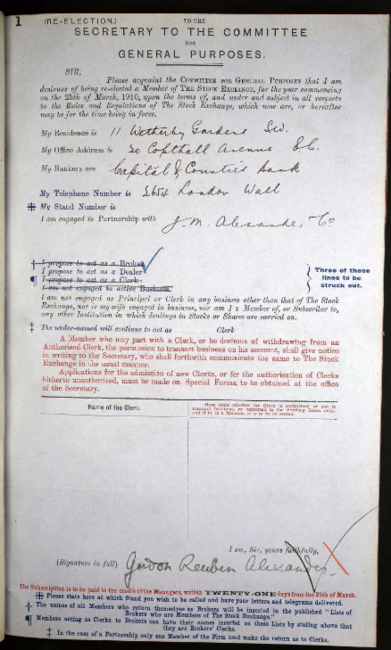 1
(RE-ELECTION.)
TO THE
SECRETARY TO THE COMMITTEE
FOR
GENERAL PURPOSES.
SIR,
Please acquaint the COMMITTEE FOR GENERAL PURPOSES that I am
desirous of being re-elected a Member of THE STOCK EXCHANGE, for the year commencing
on the 25th of March, 1910, upon the terms of, and under and subject in all respects
to the Rules and Regulations of The Stock Exchange, which now are, or hereafter
may be for the time being in force.
My Residence is 11 Wetherby Gardens S.W.
My Office Address is 20 Copthall Avenue E.C.
My Bankers are Capital & Counties Bank
My Telephone Number is London Wall
My Stand Number is
I am engaged in Partnership with J. M. Alexander & Co
I propose to act as a Broker
I propose to act as a Dealer
I propose to act as a Clerk
I am not engaged in active Business
Three of these
lines to be
struck out.
I am not engaged as Principal or Clerk in any business other than that of The Stock
Exchange, nor is my wife engaged in business, nor am I a Member of, or Subscriber to,
any other Institution in which dealings in Stocks or Shares are carried on.
‡ The under-named will continue to act as Clerk
A Member who may part with a Clerk, or be desirous of withdrawing from an
Authorised Clerk, the permission to transact business on his account, shall give notice
in writing to the Secretary, who shall forthwith communicate the same to The Stock
Exchange in the usual manner.
Applications for the admission of new Clerks, or for the authorisation of Clerks
hitherto unauthorised, must be made on Special Forms, to be obtained at the office
of the Secretary.
Name of the Clerk.
I am, Sir, yours faithfully,
(Signature in full) Gordon Reuben Alexander
The Subscription is to be paid to the credit of the Managers, within TWENTY-ONE days from the 25th of March.
Please state here at which Stand you wish to be called and have your letters and telegrams delivered.
The names of all Members who return themselves as Brokers will be inserted in the published "Lists of
Brokers who are Members of The Stock Exchange."
Members acting as Clerks to Brokers can have their names inserted on these Lists by stating above that
they are Brokers' Clerks.
‡ In the case of a Partnership only one Member of the Firm need make the return as to Clerks.